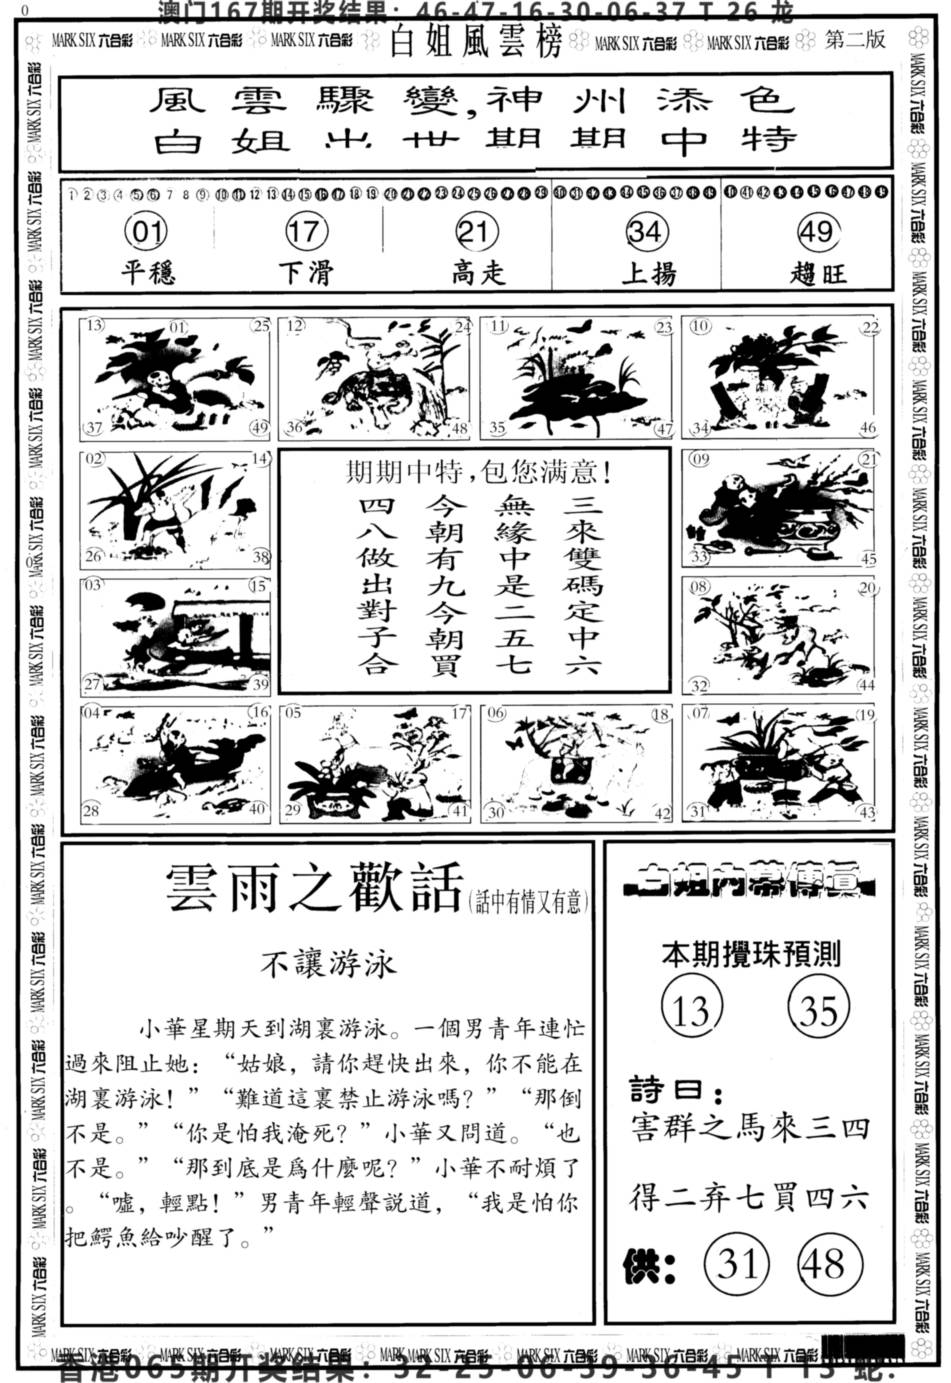 0
澳门167期开奖结果：46-47-16-30-06-37 T 26 龙
MARK SIX 六合彩 MARK SIX 六合彩 MARK SIX 六合彩 白姐風雲榜 MARK SIX 六合彩 MARK SIX 六合彩 第二版
風雲驟變,神州添色
白姐出世期期中特
01 17 21 34 49
平穩 下滑 高走 上揚 趨旺
13 01 25 12 24 11 23 10 22
37 49 36 48 35 47 34 46
02 14 09 21
26 38 33 45
03 15 08 20
27 39 32 44
04 16 05 17 06 18 07 19
28 40 29 41 30 42 31 43
期期中特,包您满意!
三來雙碼定中六
無緣中是二五七
今朝有九今朝買
四八做出對子合
雲雨之歡話(話中有情又有意)
不讓游泳
小華星期天到湖裏游泳。一個男青年連忙
過來阻止她：“姑娘，請你趕快出來，你不能在
湖裏游泳！”“難道這裏禁止游泳嗎？”“那倒
不是。”“你是怕我淹死？”小華又問道。“也
不是。”“那到底是爲什麼呢？”小華不耐煩了
。“噓，輕點！”男青年輕聲説道，“我是怕你
把鰐魚給吵醒了。”
白姐内幕傳真
本期攪珠預測
13 35
詩曰：
害群之馬來三四
得二弃七買四六
供： 31 48
MARK SIX 六合彩 MARK SIX 六合彩 MARK SIX 六合彩 MARK SIX 六合彩 MARK SIX 六合彩 MARK SIX 六合彩
香港065期开奖结果：32-25-06-39-36-45 T 13 蛇.